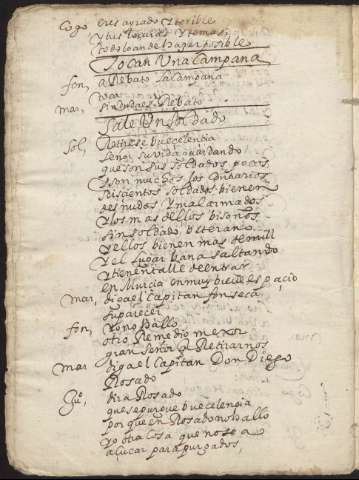 Cogo eres ayrado y terible
y tus locuras y temas
todo lo an de haçer posible
Tocan Una Campana
fon, a Rebato la campana
toca
mar, sin duda es Rebato
Sale Un soldado
Sol, Retirese buecelencia
señor su vida guardando
que son sus soldados pocos
y son muchos los contrarios
seiscientos soldados bienen
desnudos y mal armados
y los mas dellos bisoños
sin soldado beterano
y ellos bienen mas de mill
y el lugar ban asaltando
y tienen talle de entrar
en Murcia en muy breve espacio
mar, diga el Capitan fonseca
su parecer
fon, yo no hallo
otro Remedio mexor
gran señor q Retirarnos
mar diga el Capitan Don Diego
Rosado
dira Rosado
que se purgue buecelencia
por que en Rosado no hallo
yo otra cosa que no sea
açucar para purgados,